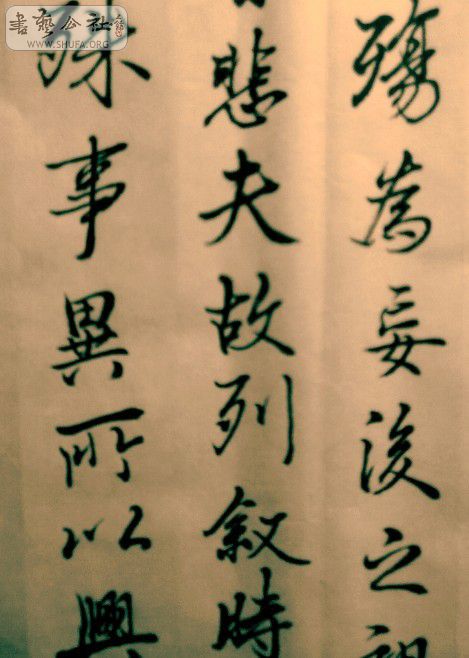 殤為妄後之視
悲夫故列叙時
殊事異所以興
書藝公社
WWW.SHUFA.ORG